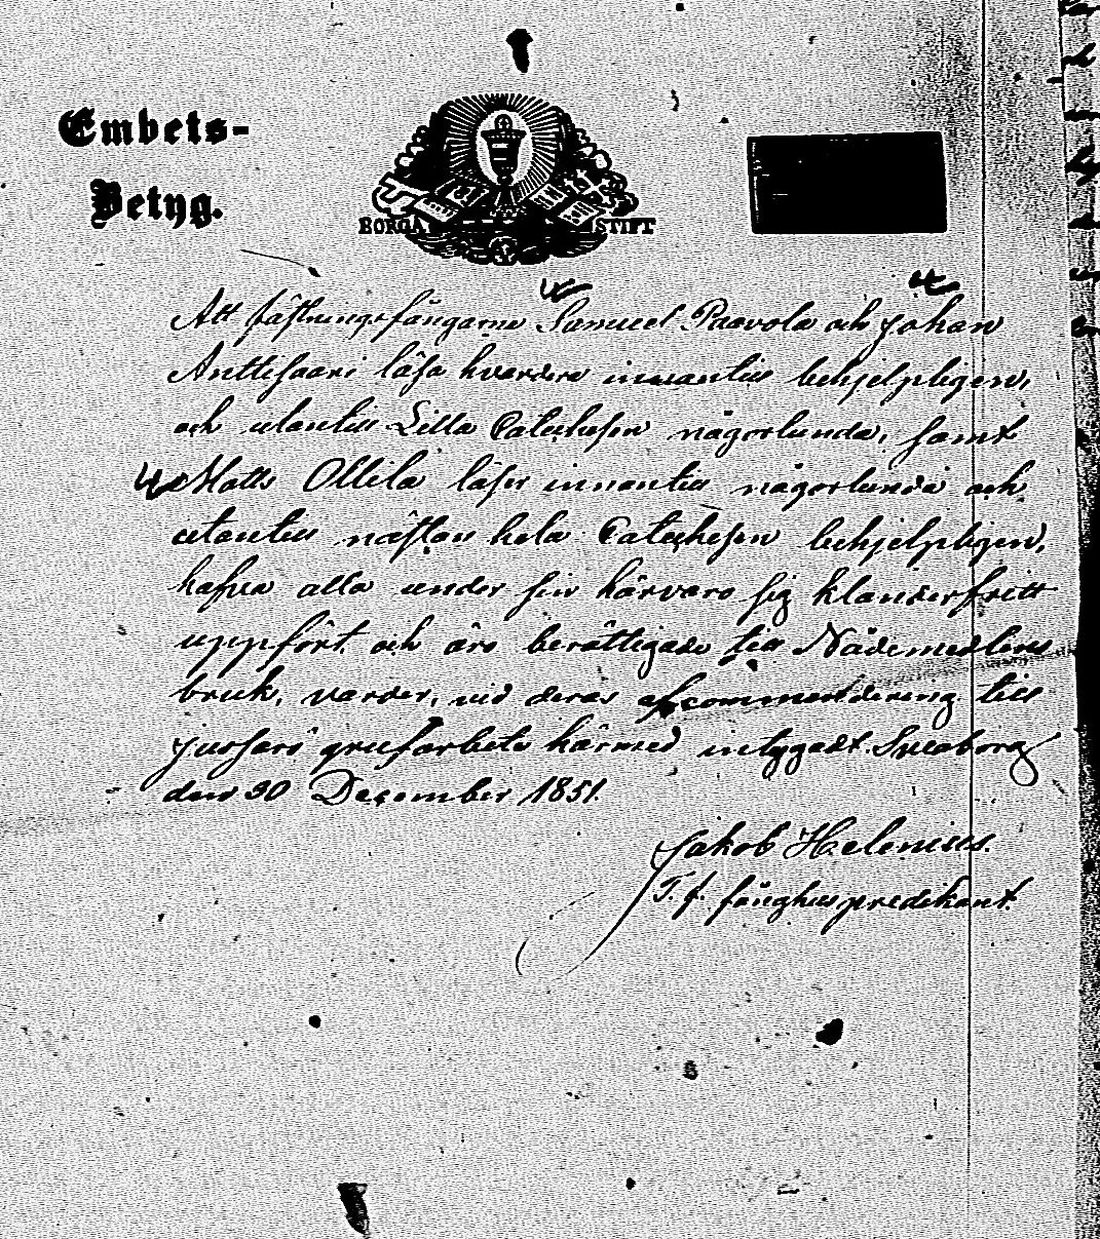 Embets-
Betyg.
BORGÅ STIFT
Att fästningsfångarne Samuel Paavola och Johan
Anttisaari läsa hvardera innantill behjelpligen,
och utantill Lilla Catechesen någorlunda, samt
Matts Ollila läser innantill någorlunda och
utantill nästan hela Catechesen behjelpligen,
hafva alla under sin härvaro sig klanderfritt
uppfört, och äro berättigade till Nådemedlens
bruk, varder, vid deras afcommendering till
Jussarö grufarbete härmed intygadt. Sveaborg
den 30 December 1851.
Jakob Helenius.
T. f. fånghuspredikant.